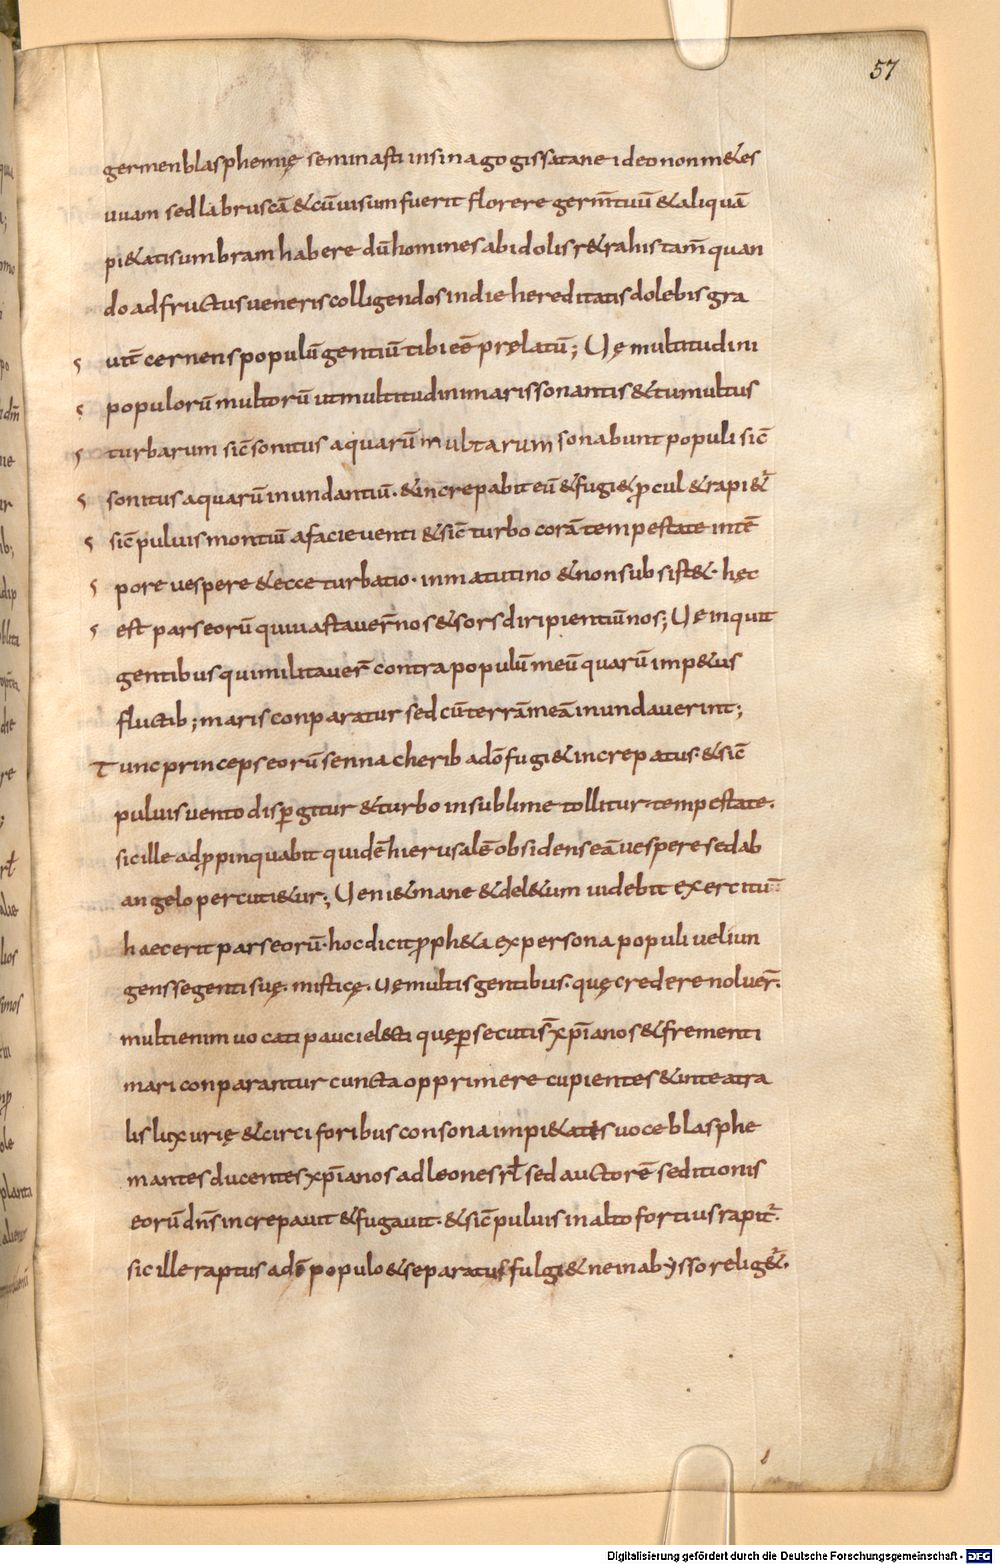 57
germen blasphemię seminasti in sinagogis satane ideo non m&es
uuam sed labruscā & cū uisum fuerit florere germ̄ tuū & aliquā
pi&atis umbram habere dū homines ab idolis r&rahis tam̄ quan
do ad fructus ueneris colligendos in die hereditatis dolebis gra
uit̄ cernens populū gentiū tibi eē pręlatū; Uę multitudini
populorū multorū ut multitudini maris sonantis & tumultus
turbarum sic̄ sonitus aquarū multarum sonabunt populi sic̄
sonitus aquarū inundantiū. & increpabit eū & fugi& ꝓcul & rapi&̄
sic̄ puluis montiū a facie uenti & sic̄ turbo corā tempestate in tē
pore uespere & ecce turbatio. in matutino & non subsist&. hęc
est pars eorū qui uastauer̄ nos & sors diripientiū nos; Uę inquit
gentibus qui militauer̄ contra populū meū quarū imp&us
fluctib; maris conparatur sed cū terrā meā inundauerint;
Tunc princeps eorū sennacherib a dō fugi& increpatus. & sic̄
puluis uento dispgitur & turbo in sublime tollitur tempestate.
sic ille adꝓpinquabit quidē hierusalē obsidens eā uespere sed ab
angelo percuti&ur; Ueni& mane & del&um uidebit exercitū.
haec erit pars eorū. hoc dicit ꝓph&a ex persona populi uel iun
gens se genti suę. misticę. uę multis gentibus. quę credere noluer̄.
multi enim uocati pauci el&ti quę ꝑsecuti s̄ xp̄ianos & frementi
mari conparantur cuncta opprimere cupientes & in teatra
lis luxurię & circi foribus consona impi&atis uoce blasphe
mantes ducentes xp̄ianos ad leones rł sed auctorē seditionis
eorū dn̄s increpauit & fugauit. & sic̄ puluis in alto fortius rapit̄.
sic ille raptus a dē populo & separatus fulgi& ne in abẏsso relig&̄.
Digitalisierung gefördert durch die Deutsche Forschungsgemeinschaft - DFG